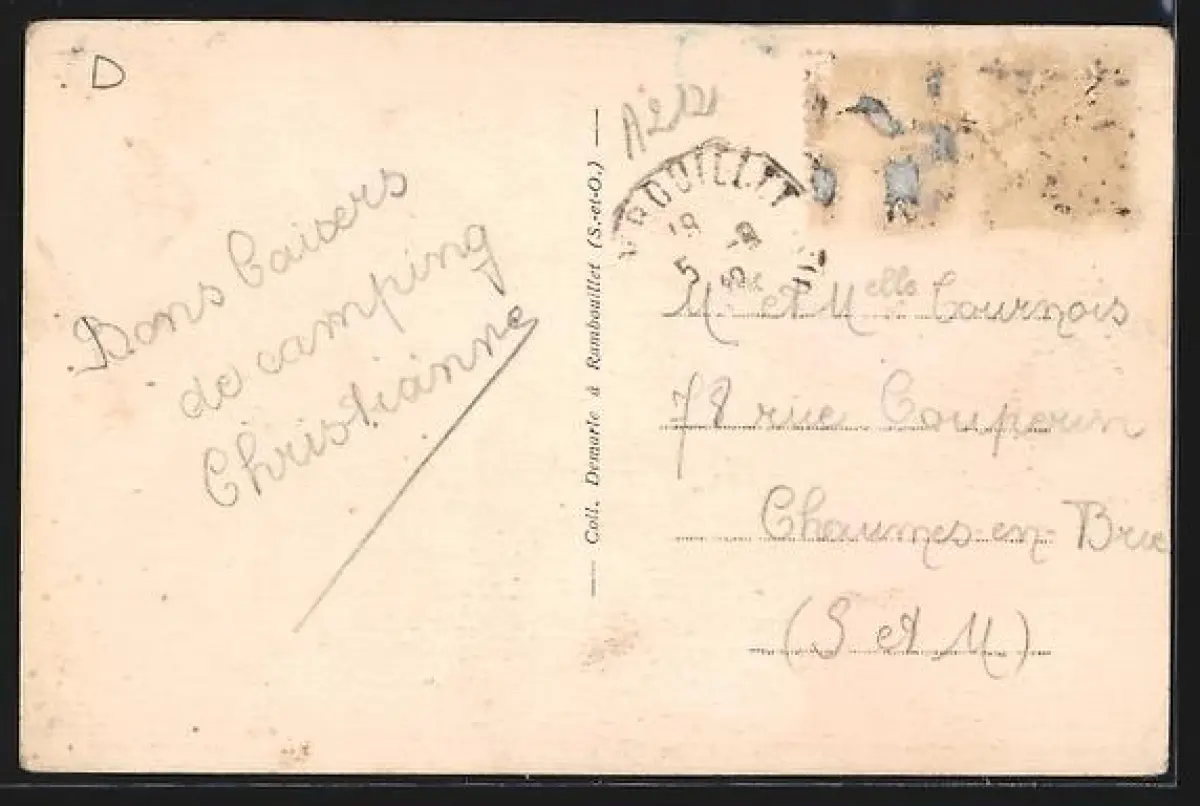 D
Bons baisers
de camping
Christianne
Coll. Demarle à Rambouillet (S.-et-O.)
BOUILLET
M et Melle Cournois
78 rue Couperin
Chaumes-en-Brie
(S et M)